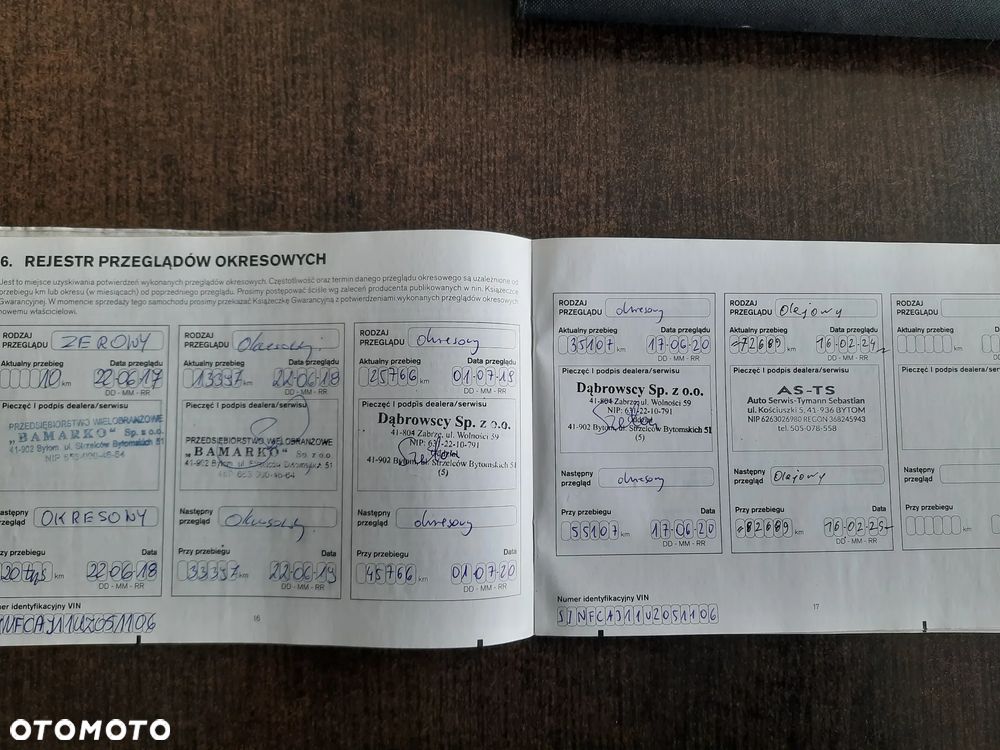 6. REJESTR PRZEGLĄDÓW OKRESOWYCH
Jest to miejsce uzyskiwania potwierdzeń wykonanych przeglądów okresowych. Częstotliwość oraz termin danego przeglądu okresowego są uzależnione od
przebiegu km lub okresu (w miesiącach) od poprzedniego przeglądu. Prosimy postępować ściśle wg zaleceń producenta publikowanych w nin. Książeczce
Gwarancyjnej. W momencie sprzedaży tego samochodu prosimy przekazać Książeczkę Gwarancyjną z potwierdzeniami wykonanych przeglądów okresowych
nowemu właścicielowi.
RODZAJ
PRZEGLĄDU ZEROWY
Aktualny przebieg Data przeglądu
10 km 22-06-17
DD - MM - RR
Pieczęć i podpis dealera/serwisu
PRZEDSIĘBIORSTWO WIELOBRANŻOWE
„BAMARKO" Sp. z o.o.
41-902 Bytom, ul. Strzelców Bytomskich 51
Następny
przegląd OKRESOWY
Przy przebiegu Data
20 tys km 22-06-18
DD - MM - RR
RODZAJ
PRZEGLĄDU
Aktualny przebieg Data przeglądu
13397 km 22-06-18
DD - MM - RR
Pieczęć i podpis dealera/serwisu
PRZEDSIĘBIORSTWO WIELOBRANŻOWE
„BAMARKO" Sp. z o.o.
41-902 Bytom, ul. Strzelców Bytomskich 51
Następny
przegląd
Przy przebiegu Data
33397 km 22-06-19
DD - MM - RR
RODZAJ
PRZEGLĄDU okresowy
Aktualny przebieg Data przeglądu
25766 km 01-07-19
DD - MM - RR
Pieczęć i podpis dealera/serwisu
Dąbrowscy Sp. z o.o.
41-804 Zabrze, ul. Wolności 59
NIP: 631-22-10-791
41-902 Bytom, ul. Strzelców Bytomskich 51
(5)
Następny
przegląd okresowy
Przy przebiegu Data
45766 km 01-07-20
DD - MM - RR
Numer identyfikacyjny VIN
SJNFCAJ11U2051106
16
RODZAJ
PRZEGLĄDU okresowy
Aktualny przebieg Data przeglądu
35107 km 17-06-20
DD - MM - RR
Pieczęć i podpis dealera/serwisu
Dąbrowscy Sp. z o.o.
41-804 Zabrze, ul. Wolności 59
NIP: 631-22-10-791
41-902 Bytom, ul. Strzelców Bytomskich 51
(5)
Następny
przegląd okresowy
Przy przebiegu Data
55107 km 17-06-20
DD - MM - RR
RODZAJ
PRZEGLĄDU Olejowy
Aktualny przebieg Data przeglądu
72689 km 16-02-24
DD - MM - RR
Pieczęć i podpis dealera/serwisu
AS-TS
Auto Serwis-Tymann Sebastian
ul. Kościuszki 5, 41-936 BYTOM
NIP 6263026980 REGON 368245943
tel. 505-078-558
Następny
przegląd Olejowy
Przy przebiegu Data
82689 km 16-02-25
DD - MM - RR
RODZAJ
PRZEGLĄDU
Aktualny przebieg
km
Pieczęć i podpis dealera/serwisu
Następny
przegląd
Przy przebiegu
km
Numer identyfikacyjny VIN
SJNFCAJ11U2051106
17
OTOMOTO